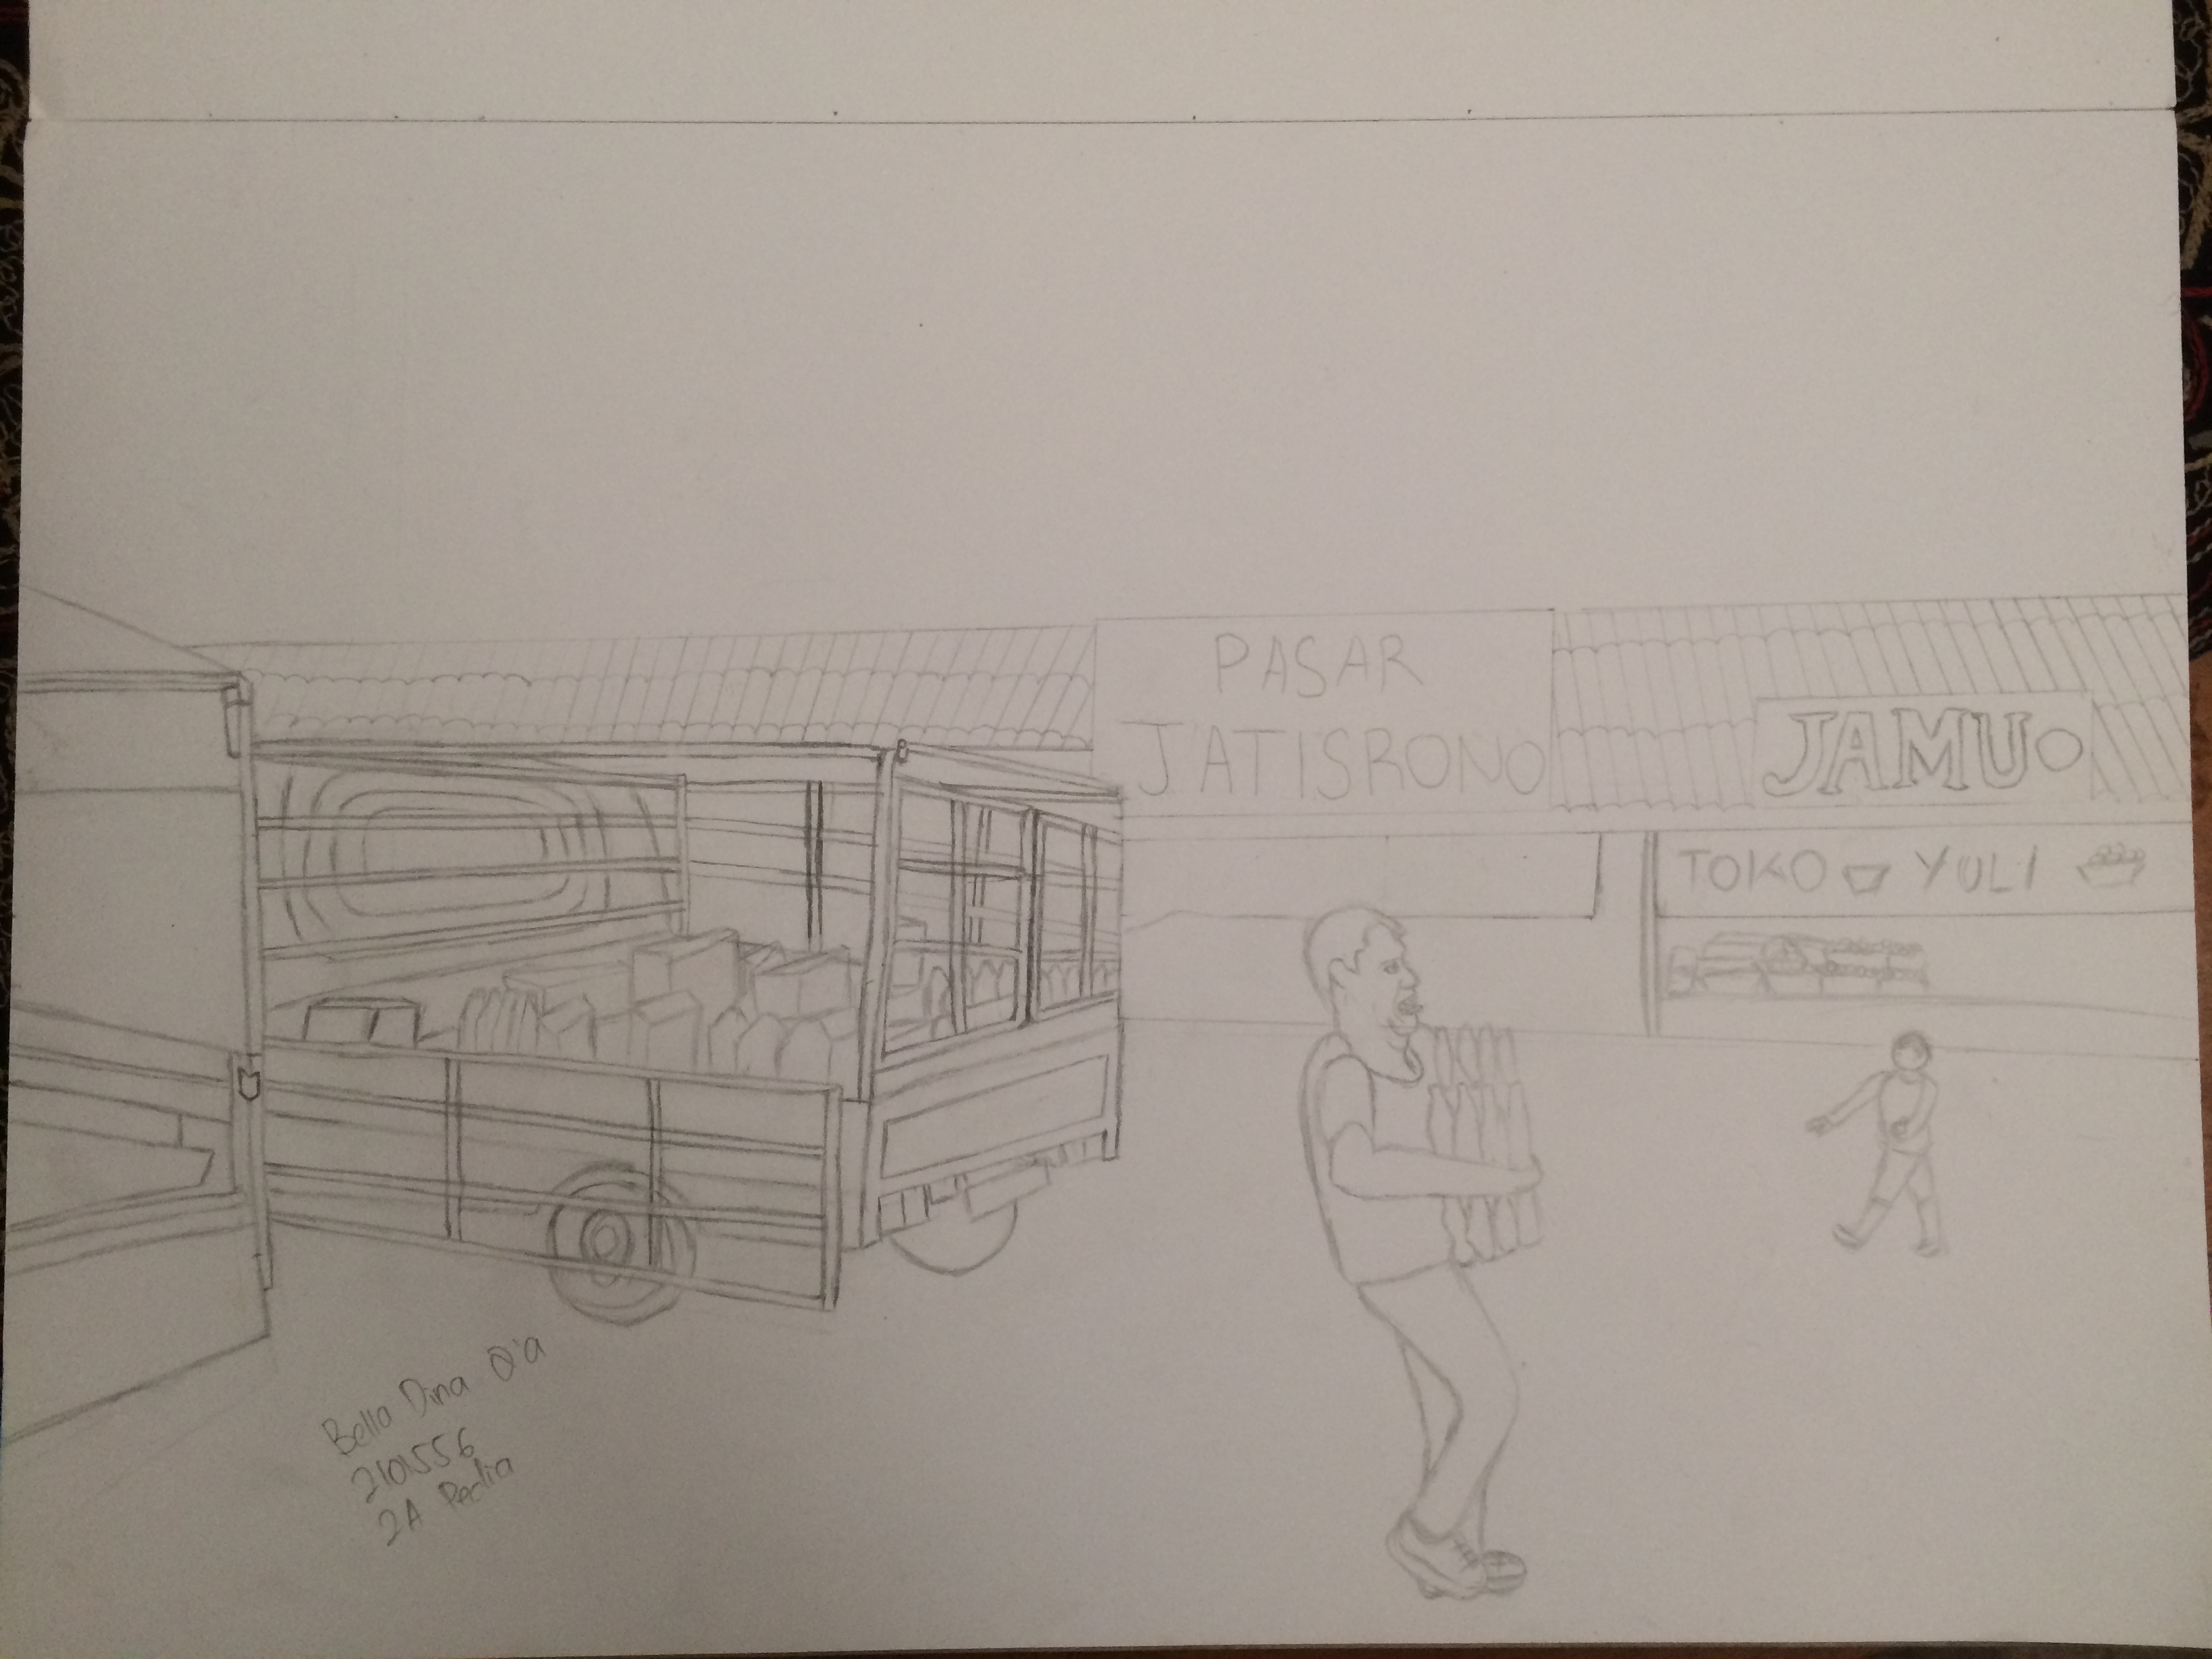 PASAR
JATISRONO
JAMU
TOKO YULI
Bella Dina Q'a
2101556
2A Pedia